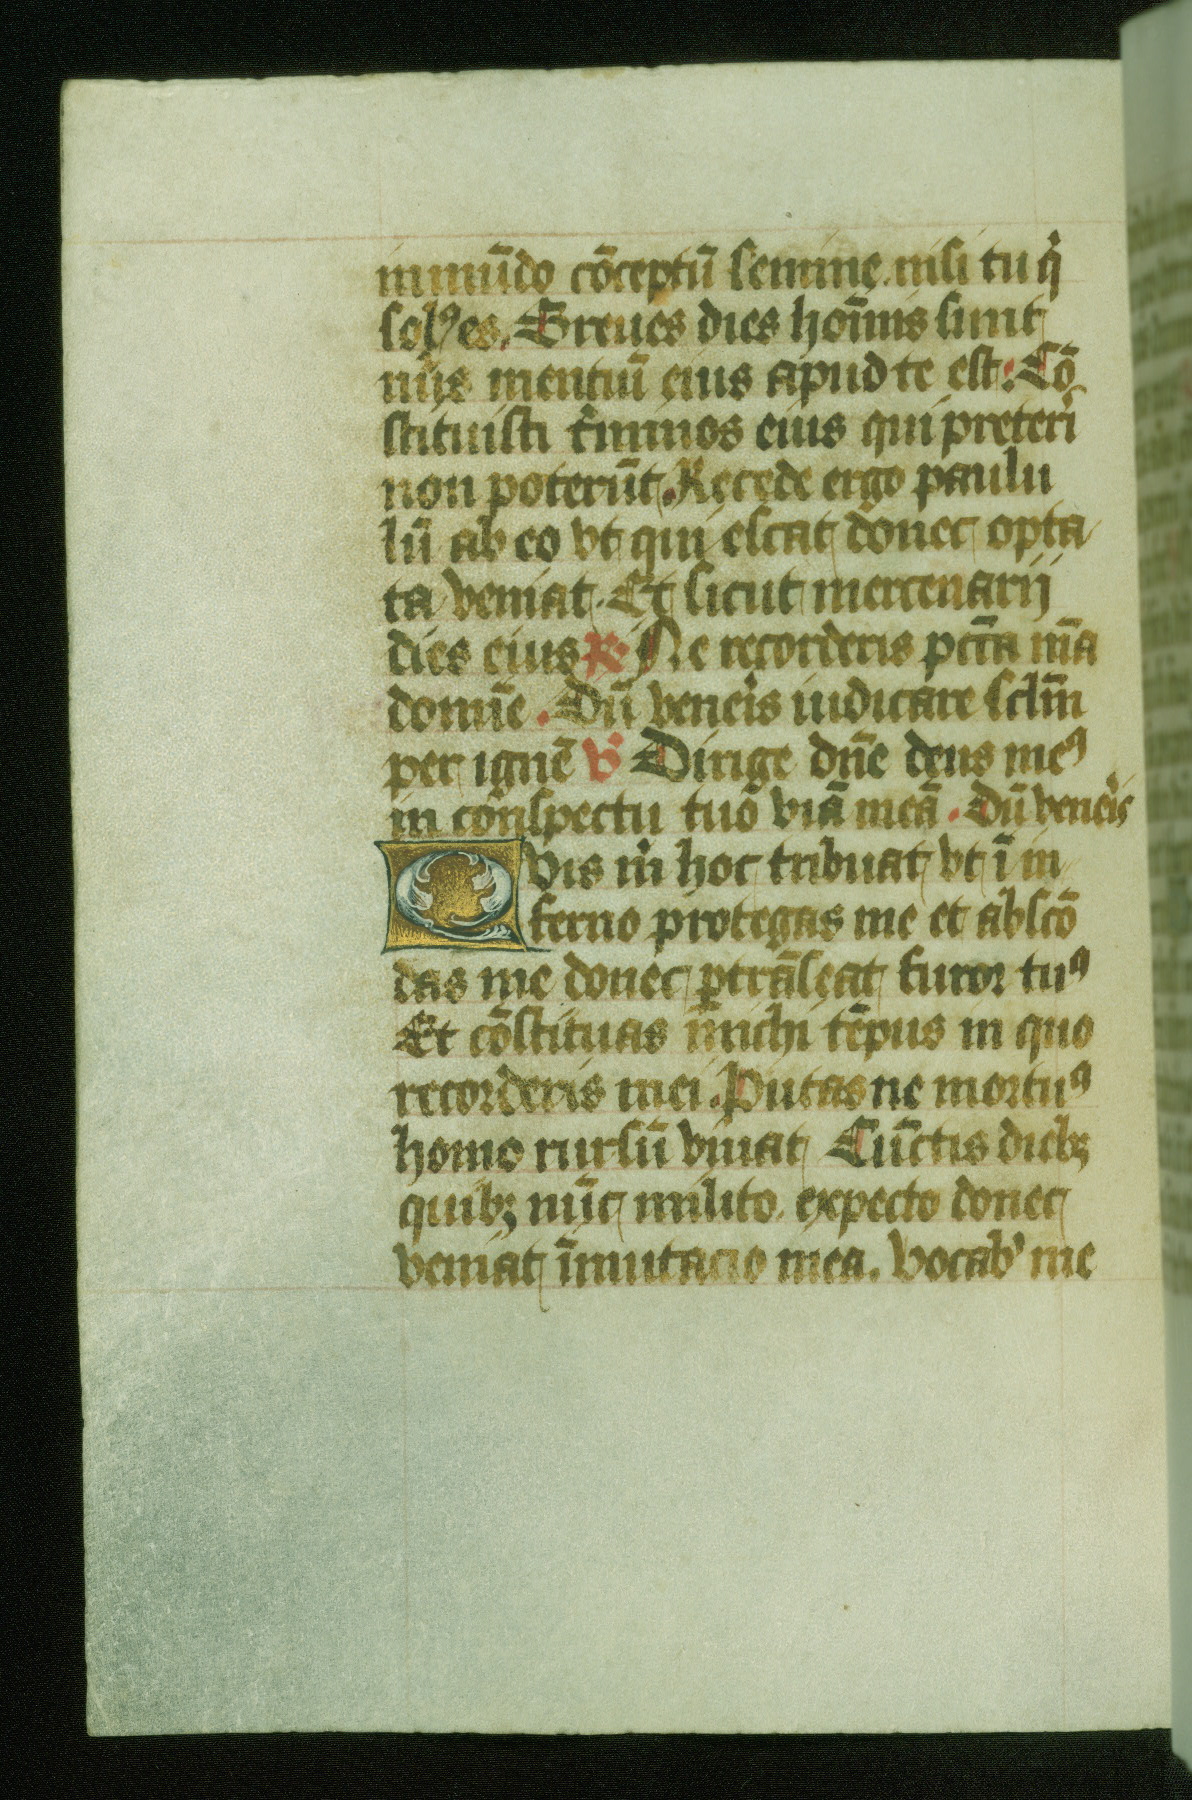 inmūdo cōceptū semine. nisi tu q̇
solꝰ es. Breues dies hoīnis sunt
nūs mentiū eius apud te est: Cō
stituisti t̄minos eius qui preteri
non poterūt. Recede ergo paulu
lū ab eo vt qui escat donec opta
ta veniat. Et sicut mercenarij
dies eius ℟ Ne recorderis pctā mā
domīe. Dū veneis iudicare sclm̄
per ignē ℣ Dirige dn̄e deus meꝰ
in conspectu tuo viā meā. Dū veneis
Qvis m̄ hoc tribuat vt ī in
ferno protegas me et abscō
das me donec ptrāseat furor tuꝰ
Et cōstituas michi tēpus in quo
recorderis mei. Putas ne mortuꝰ
homo rursū viuat Cūctis diebꝫ
quibꝫ nūc milito. expecto donec
veniat īmutacio mea. Vocabꝰ me